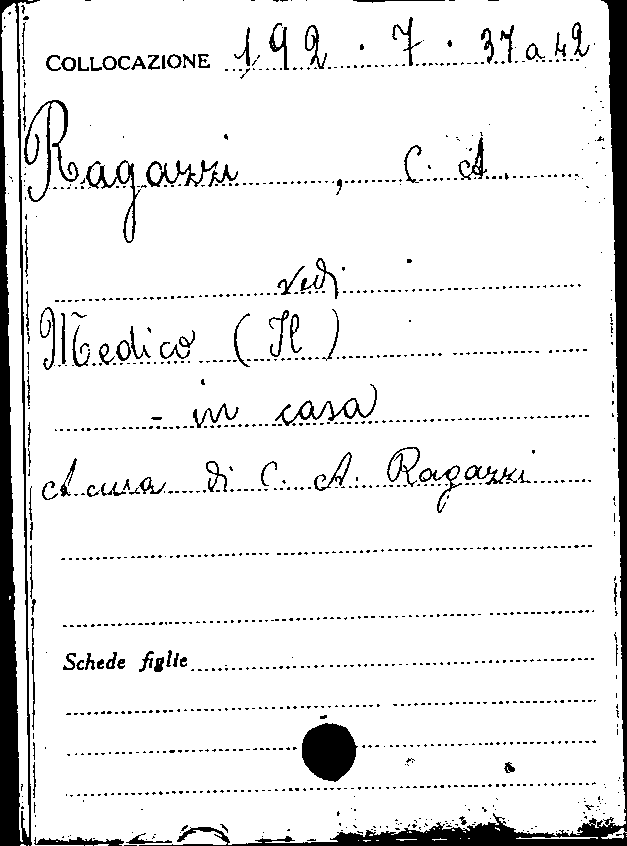 COLLOCAZIONE 192.7.37 a 42
Ragazzi, C. A.
vedi
Medico (Il)
- in casa
A cura di C. A. Ragazzi
Schede figlie